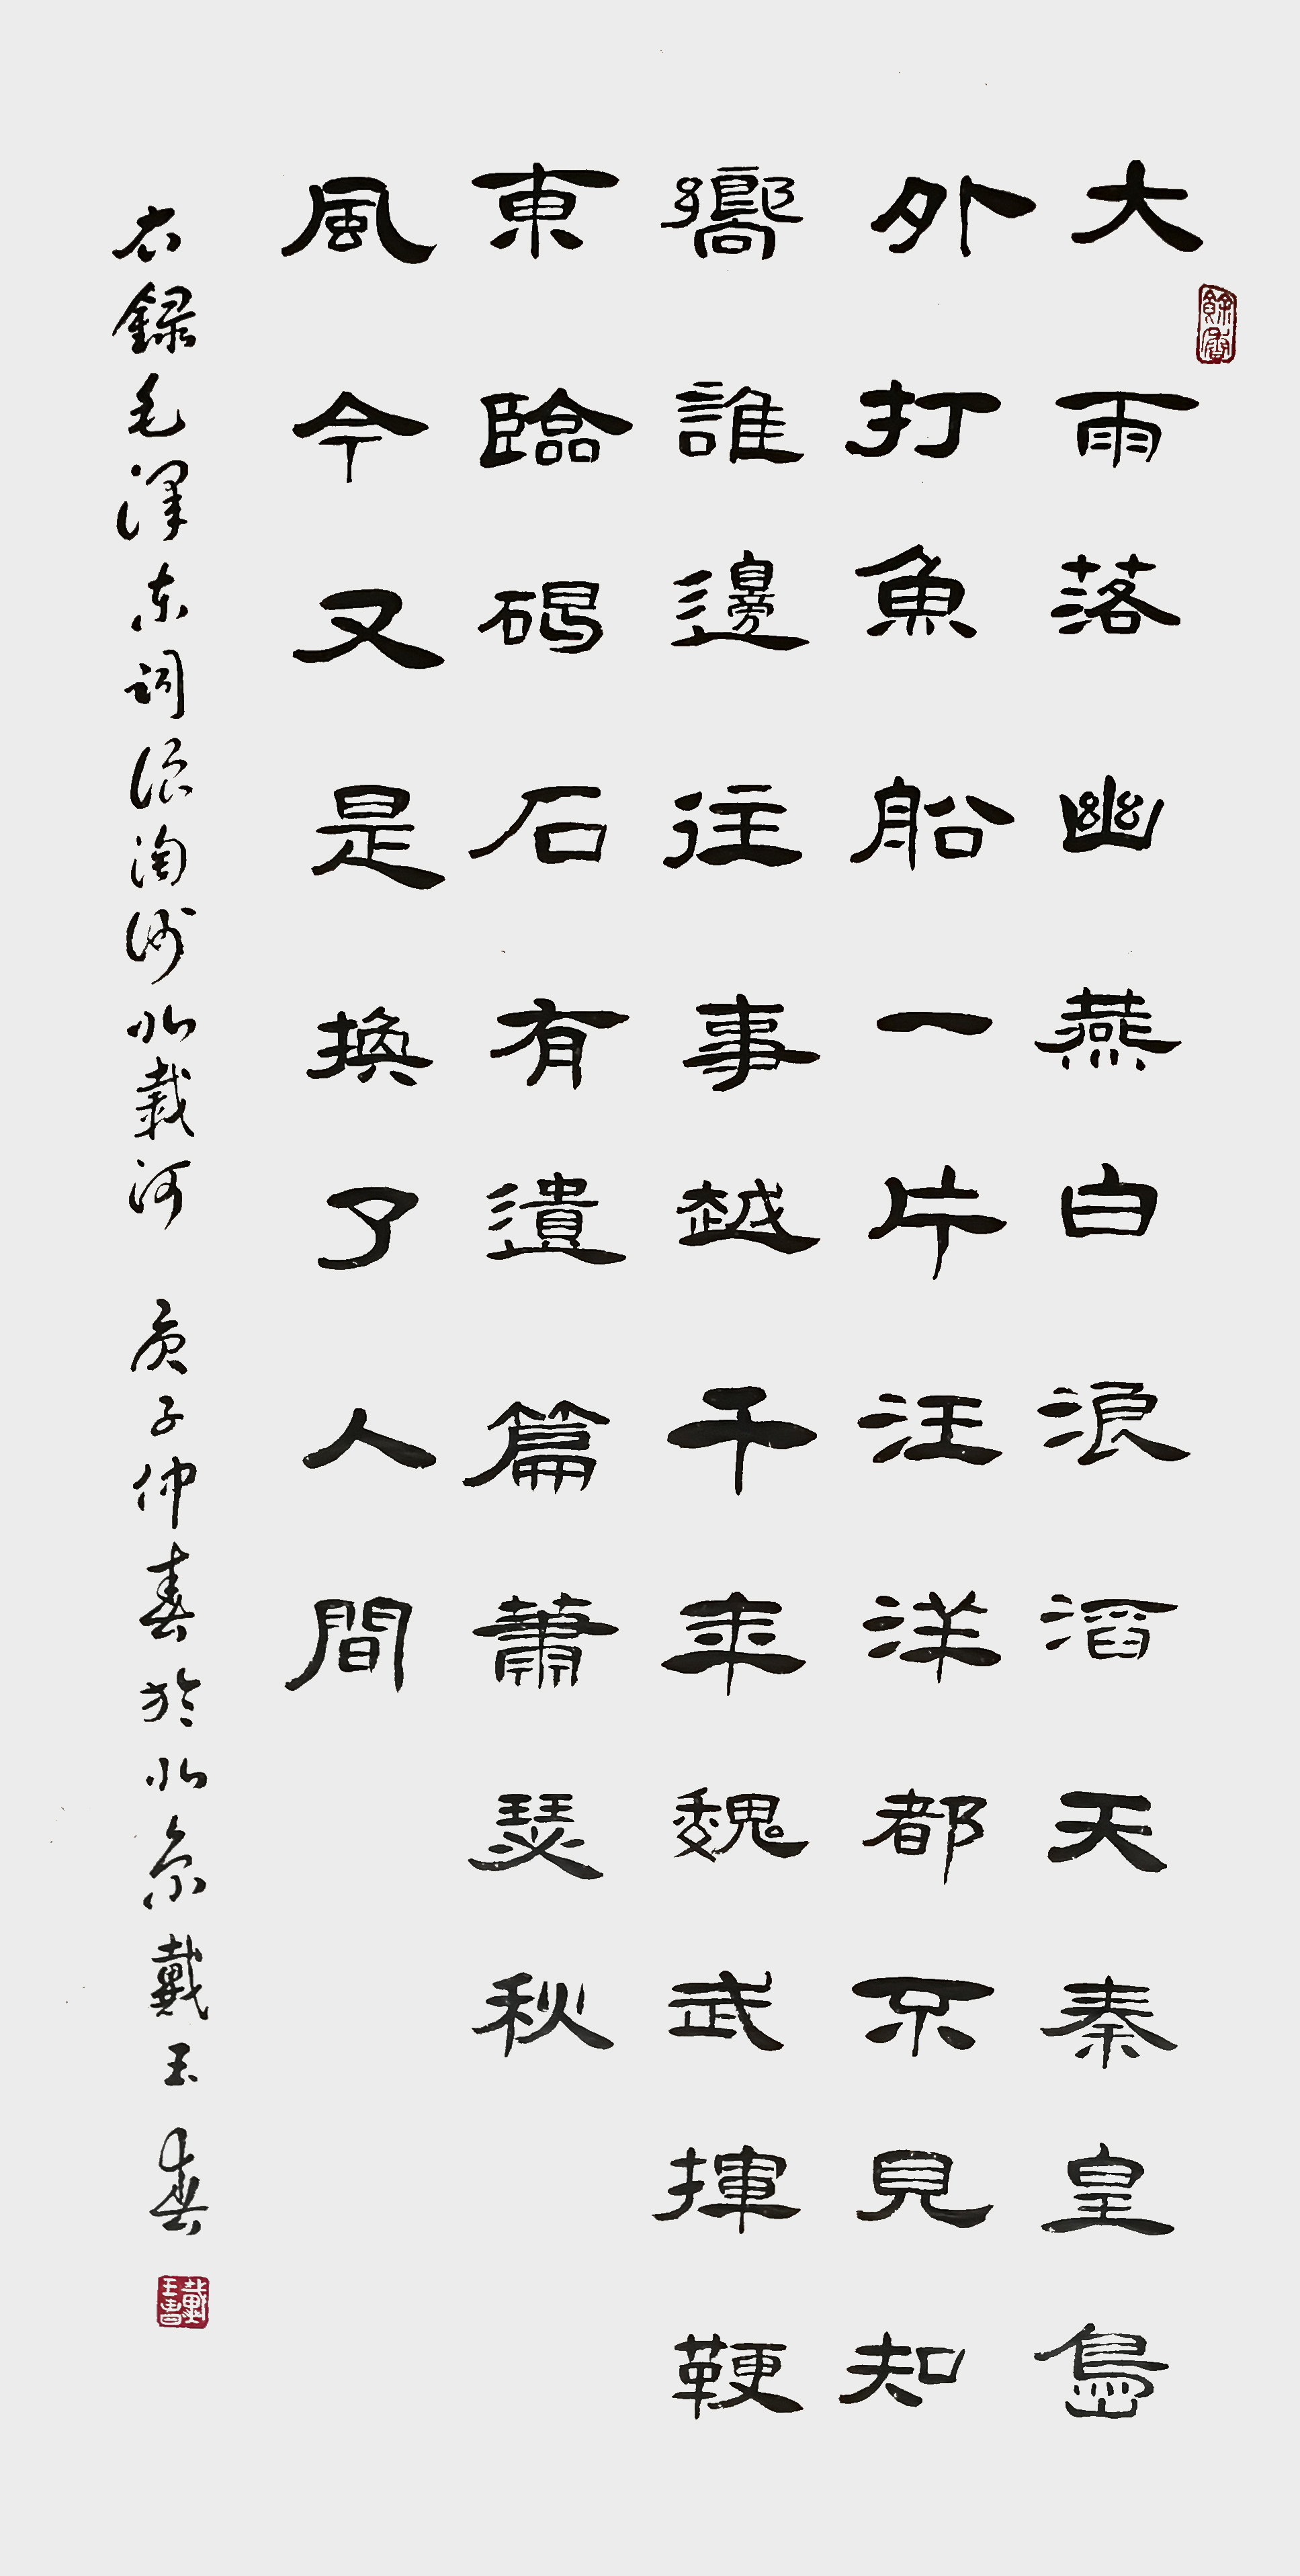 大雨落幽燕白浪滔天秦皇島
外打魚船一片汪洋都不見知
嚮誰邊往事越千年魏武揮鞭
東臨碣石有遺篇蕭瑟秋
風今又是換了人間
右録毛澤东词浪淘沙北戴河 庚子仲春於北京戴玉春